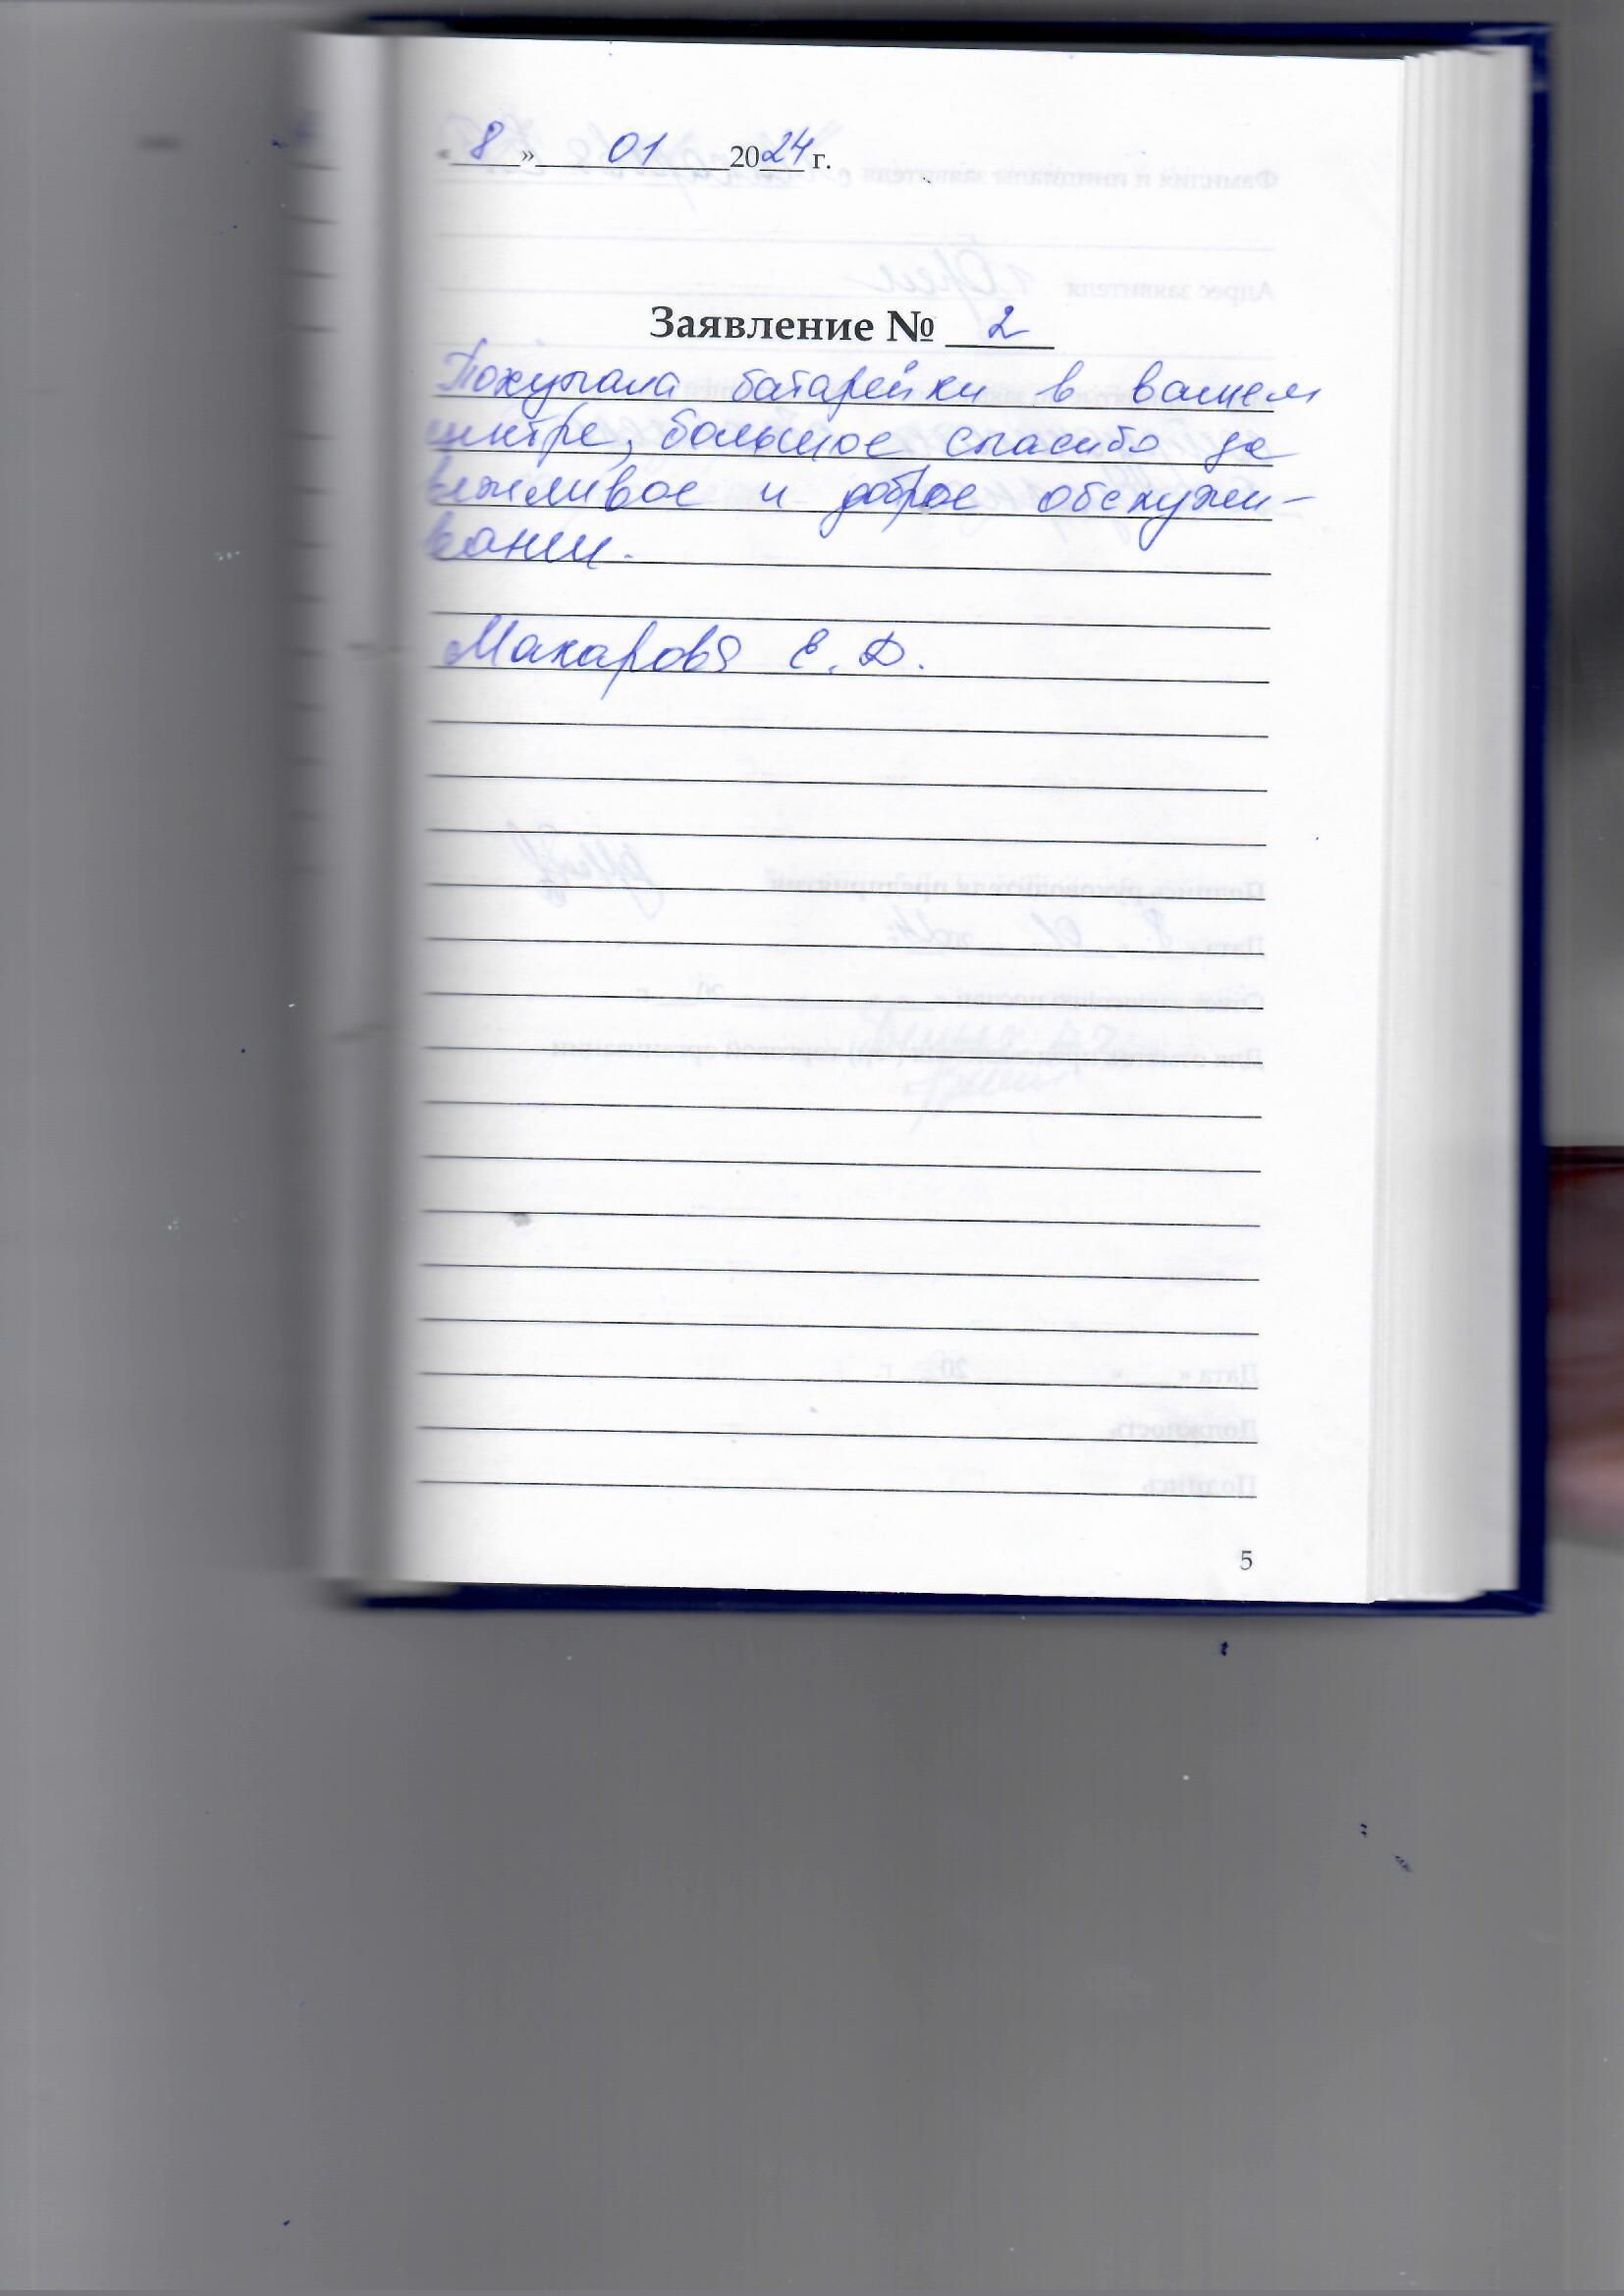 « 8 » 01 2024 г.
Заявление № 2
Покупала батарейки в вашем
центре, большое спасибо за
вежливое и доброе обслужи-
вании.
Макарова Е. Д.
5